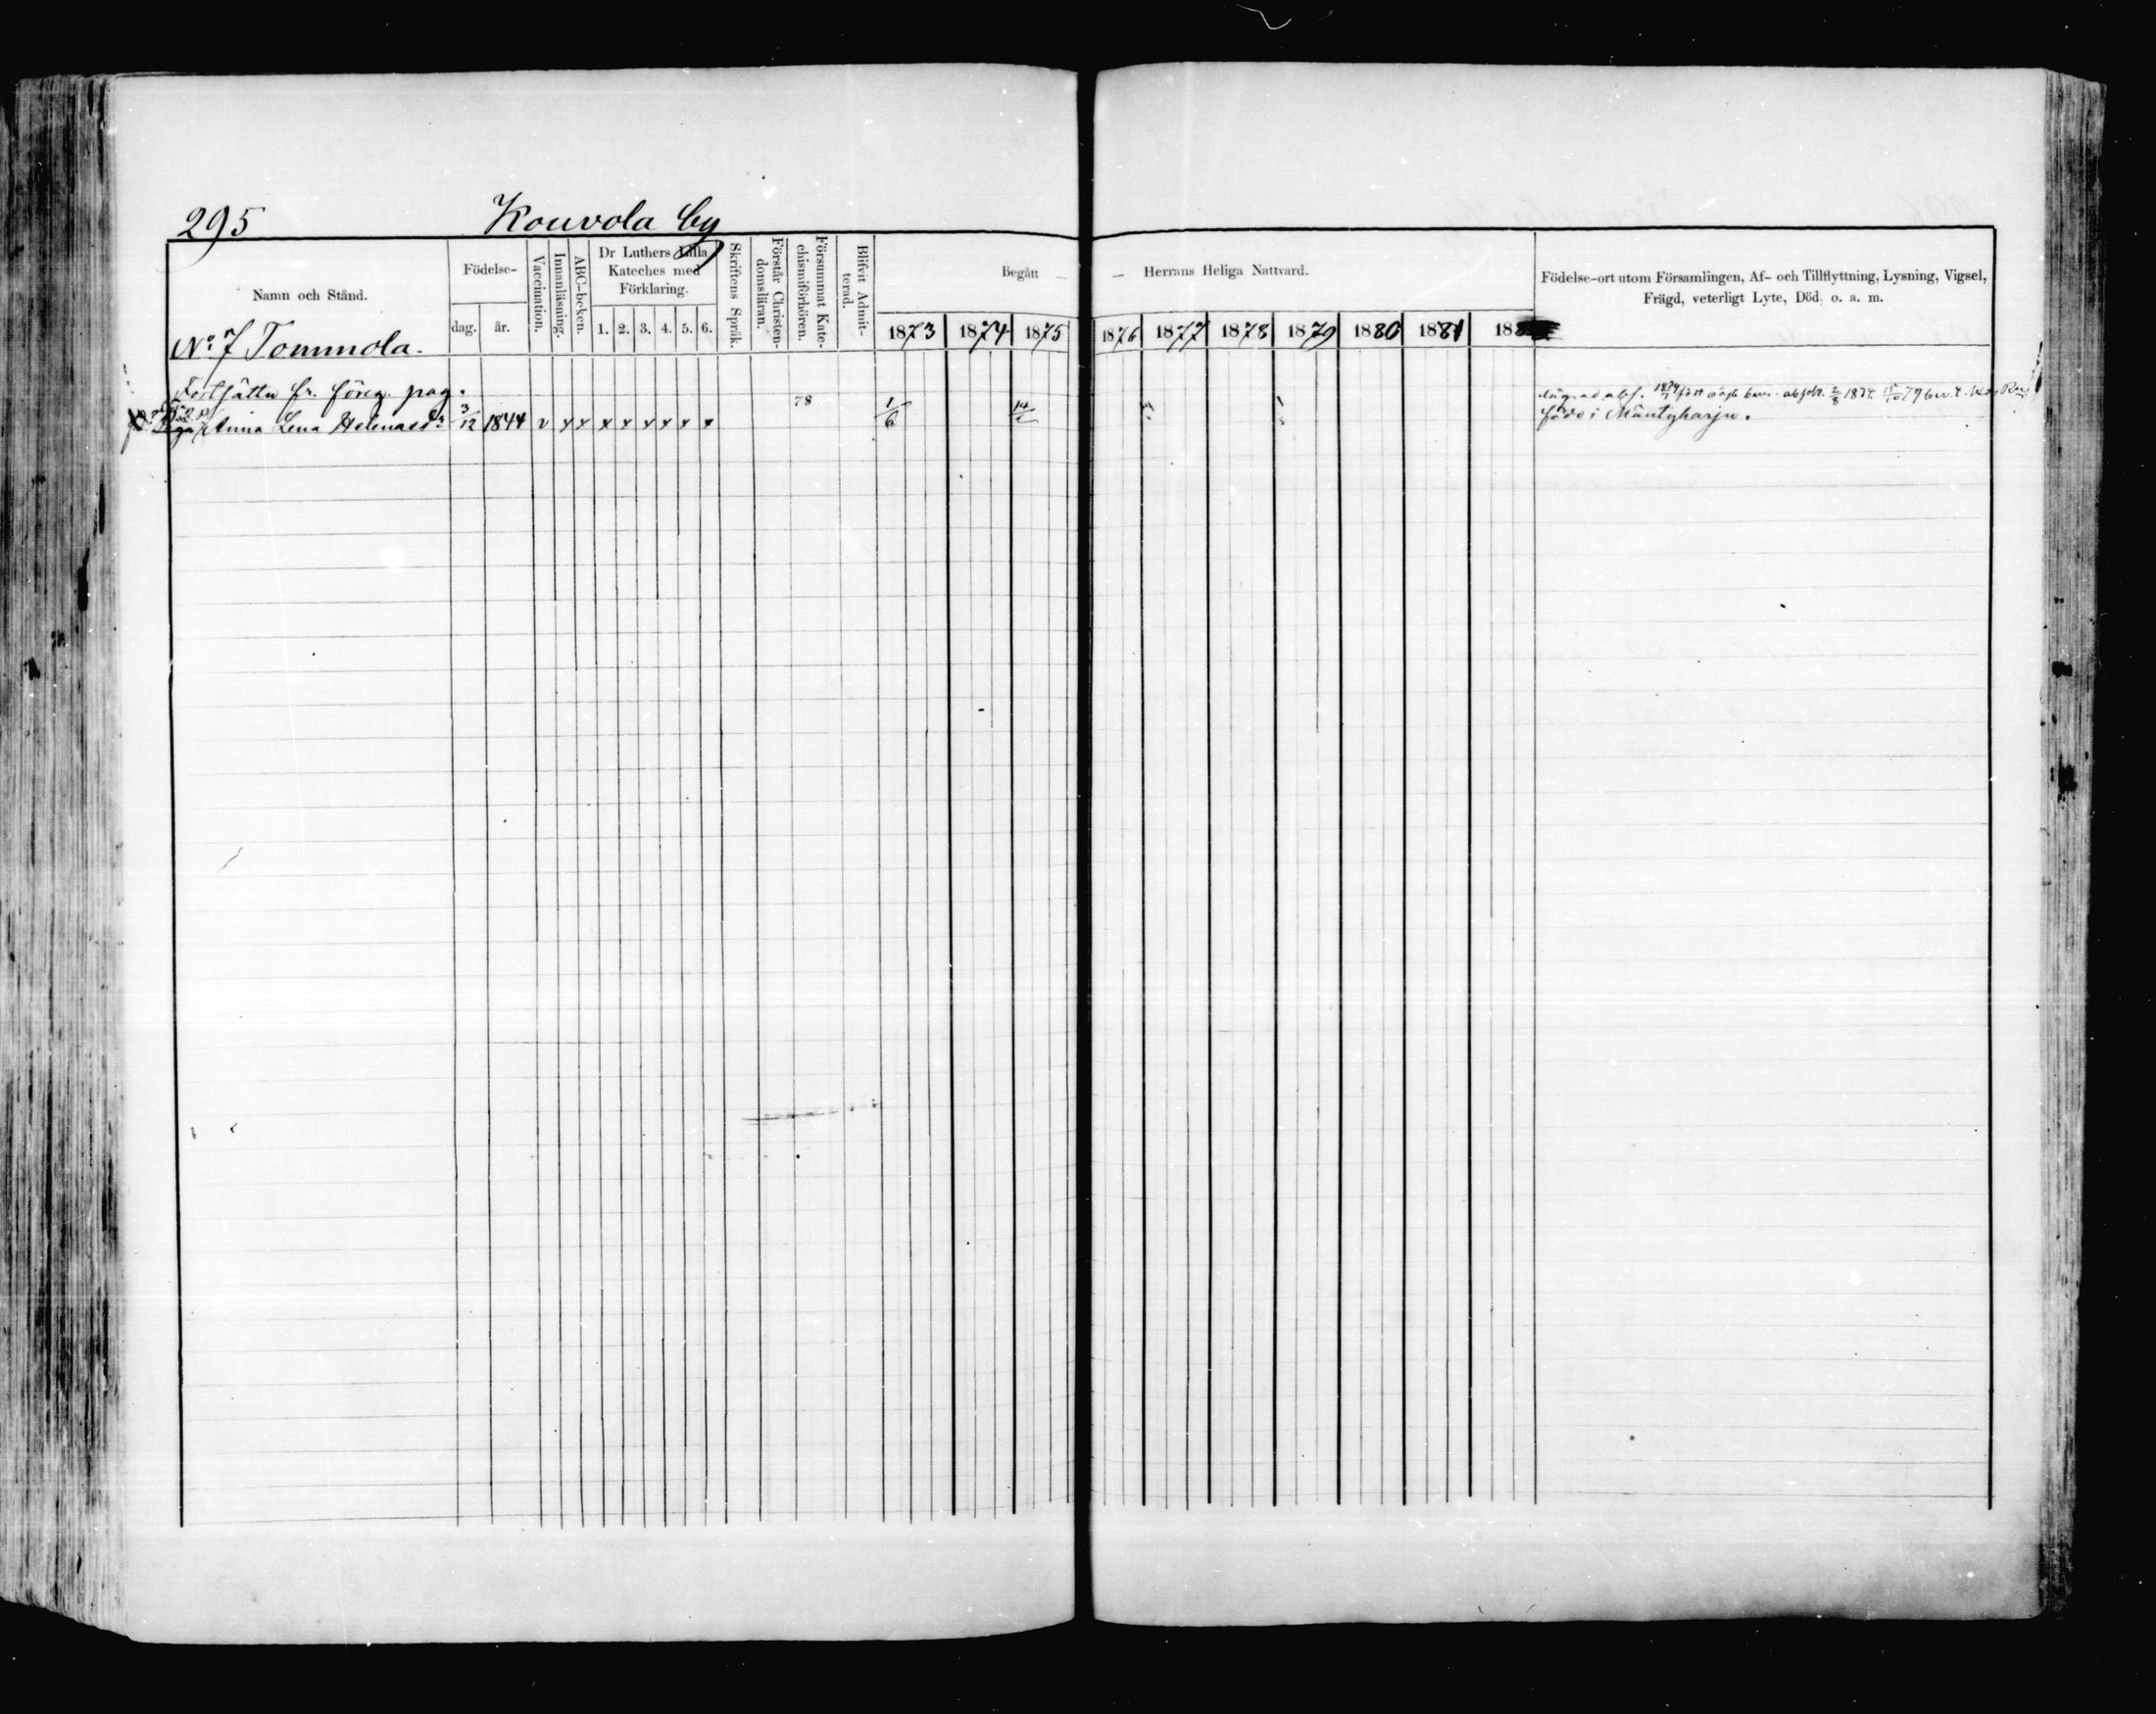 295 Kouvola by
Namn och Stånd.
Födelse-
dag. år.
Vaccination.
Innanläsning.
ABC-boken.
Dr Luthers Lilla
Kateches med
Förklaring.
1. 2. 3. 4. 5. 6.
Skriftens Språk.
Förstår Christen-
domsläran.
Försummat Kate-
chismiförhören.
Blifvit Admit-
terad.
Begått — — Herrans Heliga Nattvard.
1873 1874 1875 1876 1877 1878 1879 1880 1881 188
Födelse-ort utom Församlingen, Af- och Tillflyttning, Lysning, Vigsel,
Frägd, veterligt Lyte, Död. o. a. m.
No 7 Tommola.
Fortsättn fr. föreg. pag.
Anna Lena Helenasd:r 3/12 1844 v x x x x x x x x 78 1/6
född i Mäntyharju.